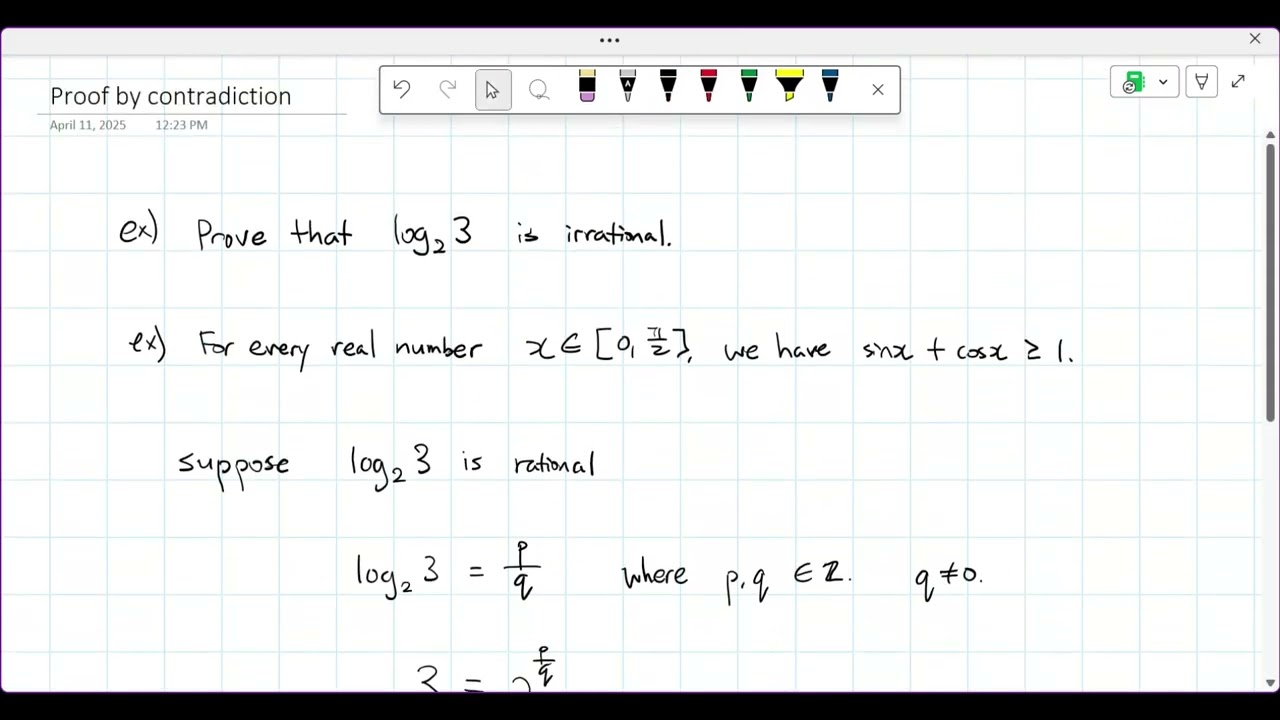 Proof by contradiction
April 11, 2025 12:23 PM
ex) Prove that log₂ 3 is irrational.
ex) For every real number x ∈ [0, π/2], we have sinx + cosx ≥ 1.
suppose log₂ 3 is rational
log₂ 3 = p/q where p, q ∈ ℤ. q ≠ 0.
3 = 2^(p/q)